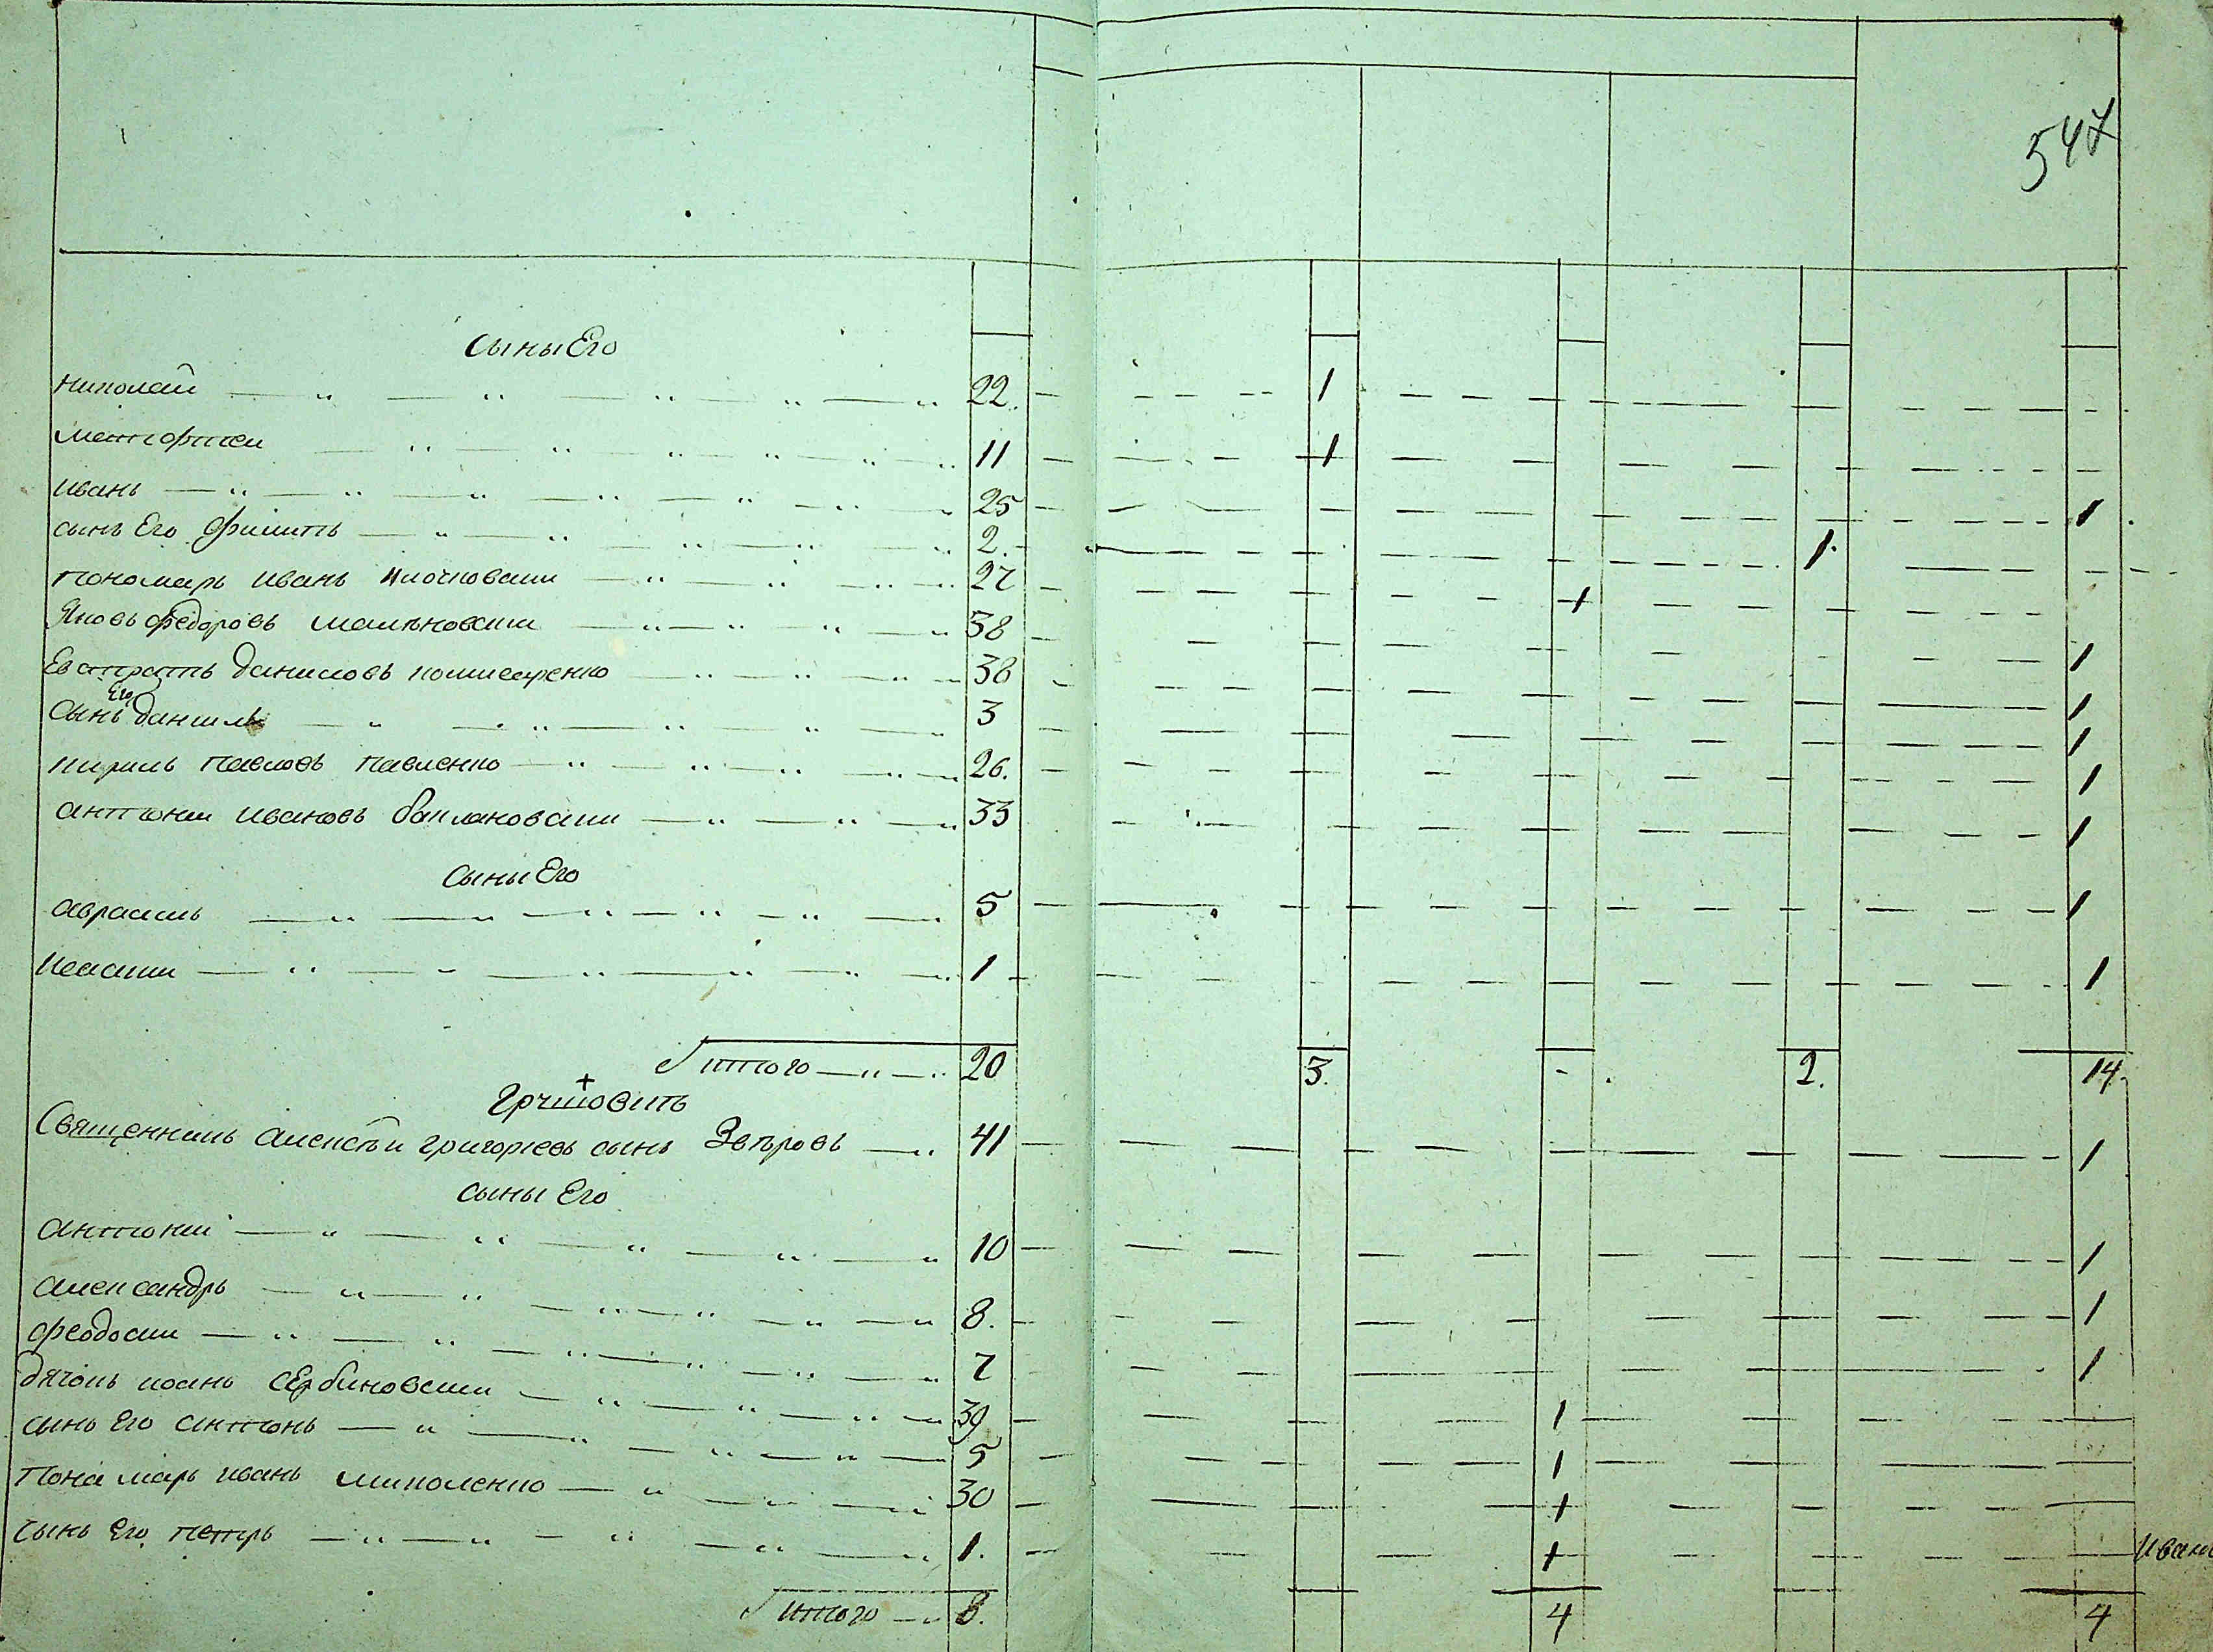 547
Сыны Его
Николай 22. 1
Меѳтодиеи 11 1
Иванъ 25 1
сынъ Его Филипъ 2. 1.
Пономарь Иванъ Клочковский 27 1
Яковъ Федоровъ 38 1
Евстратъ Даниловъ 38 1
Сынъ Его Даниилъ 3 1
Кирилъ Павловъ Павленко 26. 1
Антоний Ивановъ Баклановский 33 1
Сыны Его
Аврамъ 5 1
1 1
Итого 20 3. - 2. 14.
Священникъ Алексѣй Григориевъ сынъ Звѣровъ 41 1
сыны Его
Антоний 10 1
Александръ 8. 1
Феодосий 7 1
дячокъ Иоанъ Сербиновский 39 1
сынъ Его Антонъ 5 1
Понамарь Иванъ Миколенко 30 1
сынъ Его Петръ 1. 1
Иван
Итого 8. 4 4